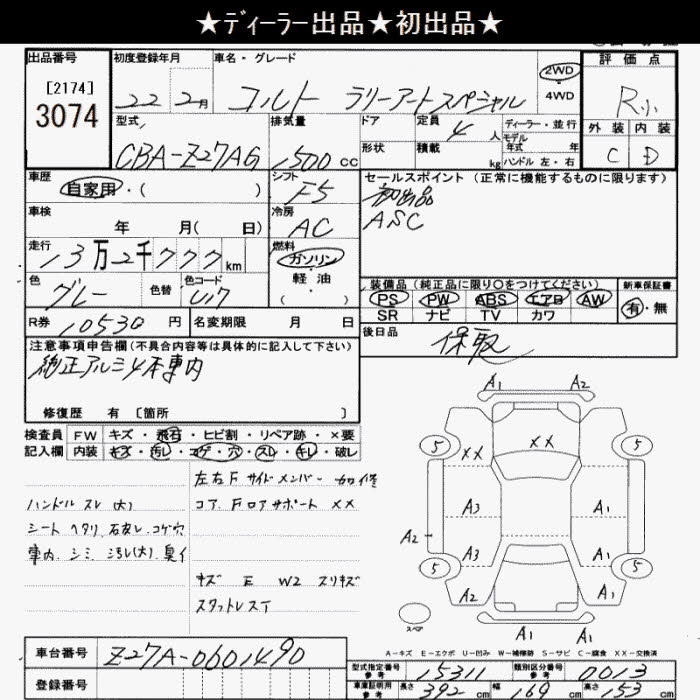 ★ディーラー出品★初出品★
出品番号 初度登録年月 車名・グレード 評価点
[2174] 3074 22年2月 コルト ラリーアートスペシャル 2WD 4WD R小
型式 排気量 ドア 定員 4人 ディーラー・並行 外装 内装
CBA-Z27AG 1500cc 形状 積載 kg モデル年式 年 ハンドル 左・右 C D
車歴 自家用・( ) シフト F5 セールスポイント (正常に機能するものに限ります)
初出品
車検 年 月( 日) 冷房 AC ASC
走行 13万2千777km 燃料 ガソリン 軽油 ( ・ )
装備品 (純正品に限り○をつけてください) 新車保証書
色 グレー 色替 色コード U17 PS PW ABS エアB AW 有・無
SR ナビ TV カワ
R券 10530円 名変期限 月 日 後日品 保取
注意事項申告欄(不具合内容等は具体的に記入して下さい)
純正アルミ4本車内
修復歴 有 [箇所 ]
検査員 FW キズ・飛石・ヒビ割・リペア跡・×要
記入欄 内装 キズ・汚レ・コゲ・穴・スレ・キレ・破レ
左右Fサイドメンバー
ハンドル スレ(大) コア、Fロアサポート ××
シート ヘタリ、 コゲ穴
車内、シミ、汚レ(大)、臭イ
キズ E W2 スリキズ
スタットレスT
A1 A2
5 ×× ×× 5
A3 A1
A2
A3 A1
5 5
A2 A1
スペア
A1 A1
A-キズ E-エクボ U-凹み W-補修跡 S-サビ C-腐食 XX-交換済
車台番号 Z27A-0601490
型式指定番号 参考 15311 類別区分番号 参考 0013
登録番号 車庫証明用 参考 長さ 392cm 幅 169cm 高さ 153cm